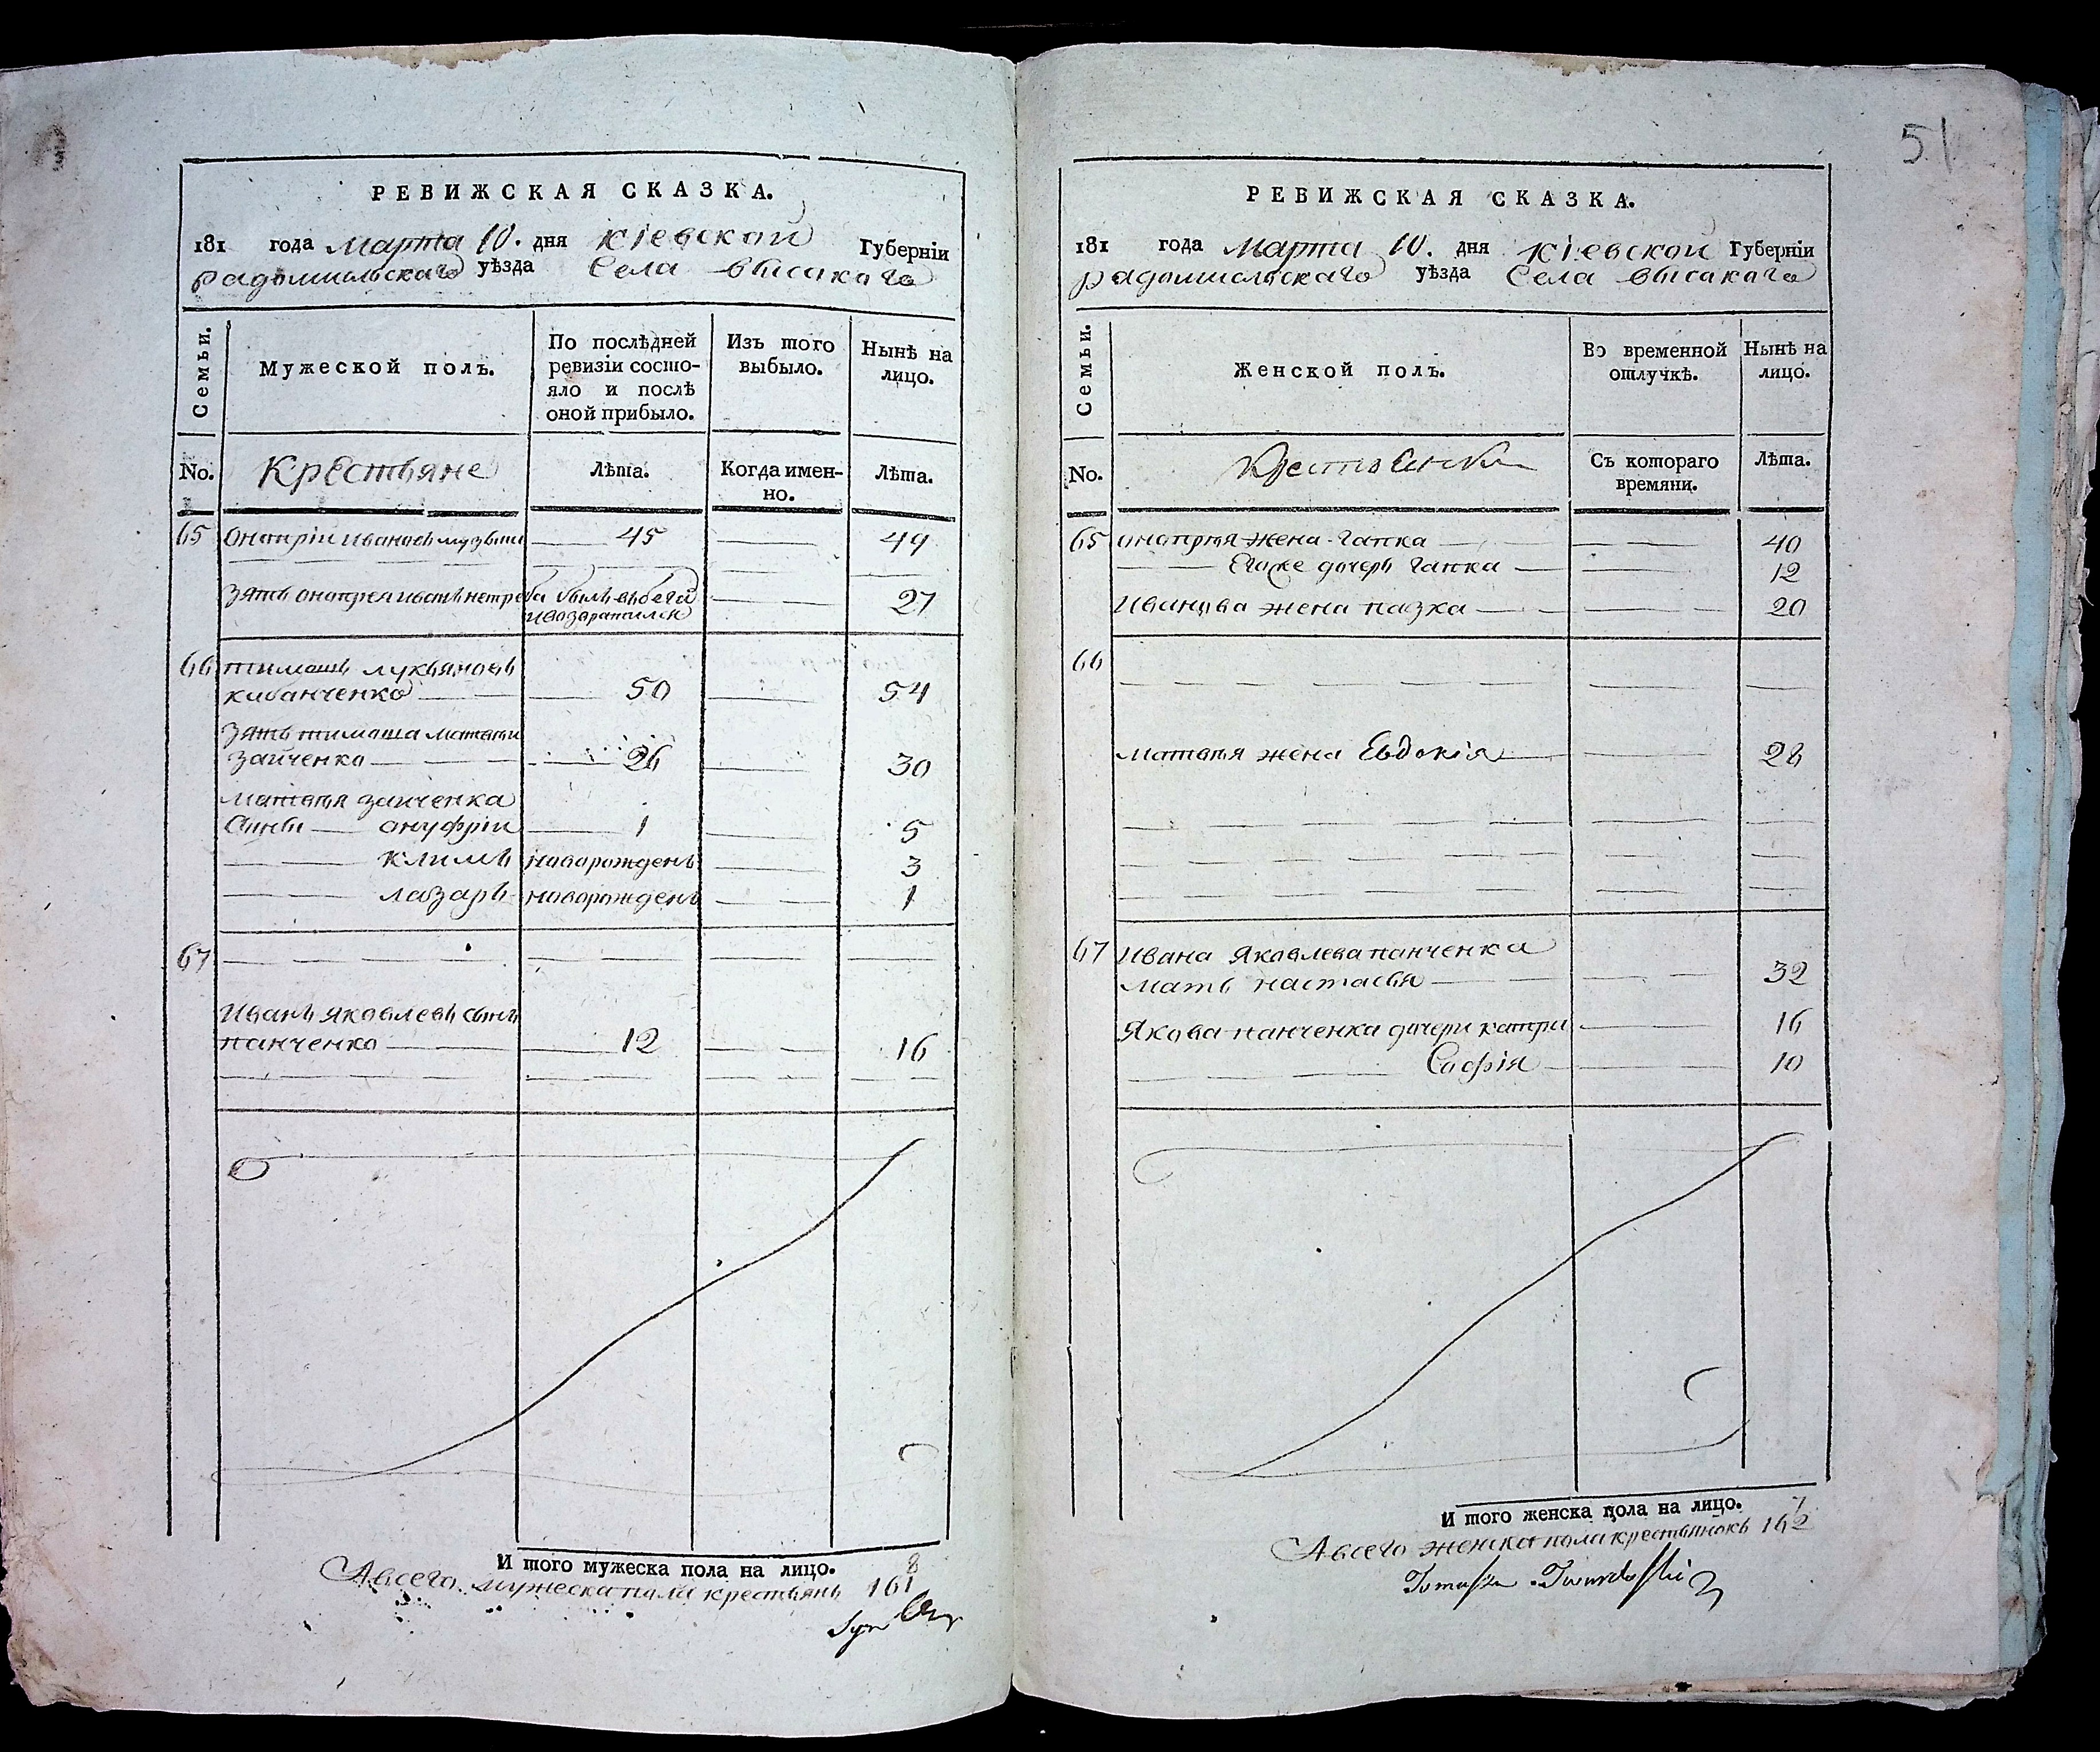 51
РЕВИЖСКАЯ СКАЗКА.
181 года Марта 10. дня Кіевской Губерніи
радомысльскаго уѣзда Села высокаго
Семьи.
Мужеской полъ.
По послѣдней ревизіи состо-
яло и послѣ
оной прибыло.
Изъ того
выбыло.
Нынѣ на
лицо.
No. Крестьяне Лѣта. Когда имен-
но. Лѣта.
65 Онопрій Ивановъ 45 49
зять онопрея иванъ нетреба былъ вбегах 27
ивозвратился
66 тимошъ лукъяновъ
50 54
зять тимоша матвей
зайченко 26 30
матвея зайченка
Сыны онуфрій 1 5
климъ новорожденъ 3
лазарь новорожденъ 1
67
Иванъ яковлевъ сынъ
панченко 12 16
И того мужеска пола на лицо. 8
Авсего мужеска пола крестьянъ 161
РЕВИЖСКАЯ СКАЗКА.
181 года Марта 10. дня Кіевской Губерніи
радомысльскаго уѣзда Села высокаго
Семьи.
Женской полъ.
Во временной
отлучкѣ.
Нынѣ на
лицо.
No. Крестьянки Съ котораго
времяни. Лѣта.
65 онопрея жена гапка 40
Егоже дочерь гапка 12
Иванова жена пазка 20
66
матвея жена Евдокія 28
67 Ивана Яковлева панченка
мать настасья 32
Якова панченка дочери катри 16
Софія 10
И того женска пола на лицо. 7
Авсего женска пола крестьянокъ 162